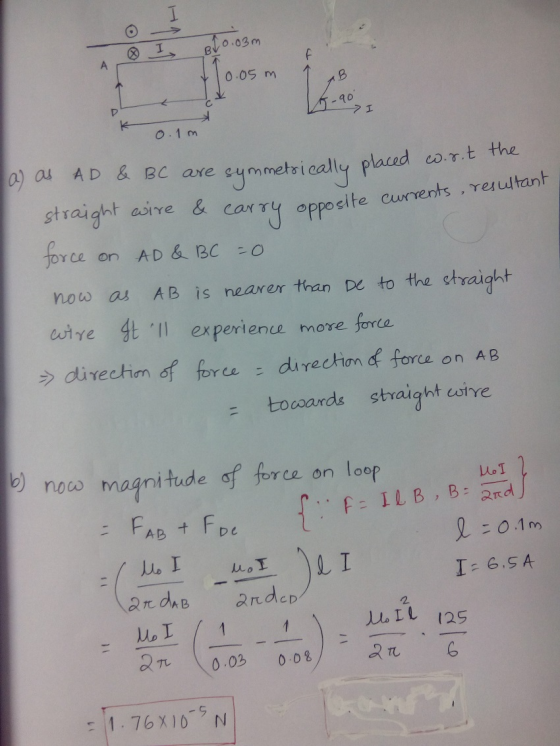 I
I
A
B
0.03m
0.05 m
D
C
0.1 m
F
B
90
I
a) as AD & BC are symmetrically placed w.r.t the
straight wire & carry opposite currents, resultant
force on AD & BC = 0
now as AB is nearer than DC to the straight
wire It 'll experience more force
⇒ direction of force = direction of force on AB
= towards straight wire
b) now magnitude of force on loop
{∵ F = I l B, B = μ₀I / 2πd}
= F_AB + F_DC
l = 0.1m
= (μ₀ I / 2π d_AB - μ₀ I / 2π d_CD) l I
I = 6.5 A
= μ₀ I / 2π (1 / 0.03 - 1 / 0.08) = μ₀ I² l / 2π · 125 / 6
= 1.76×10⁻⁵ N